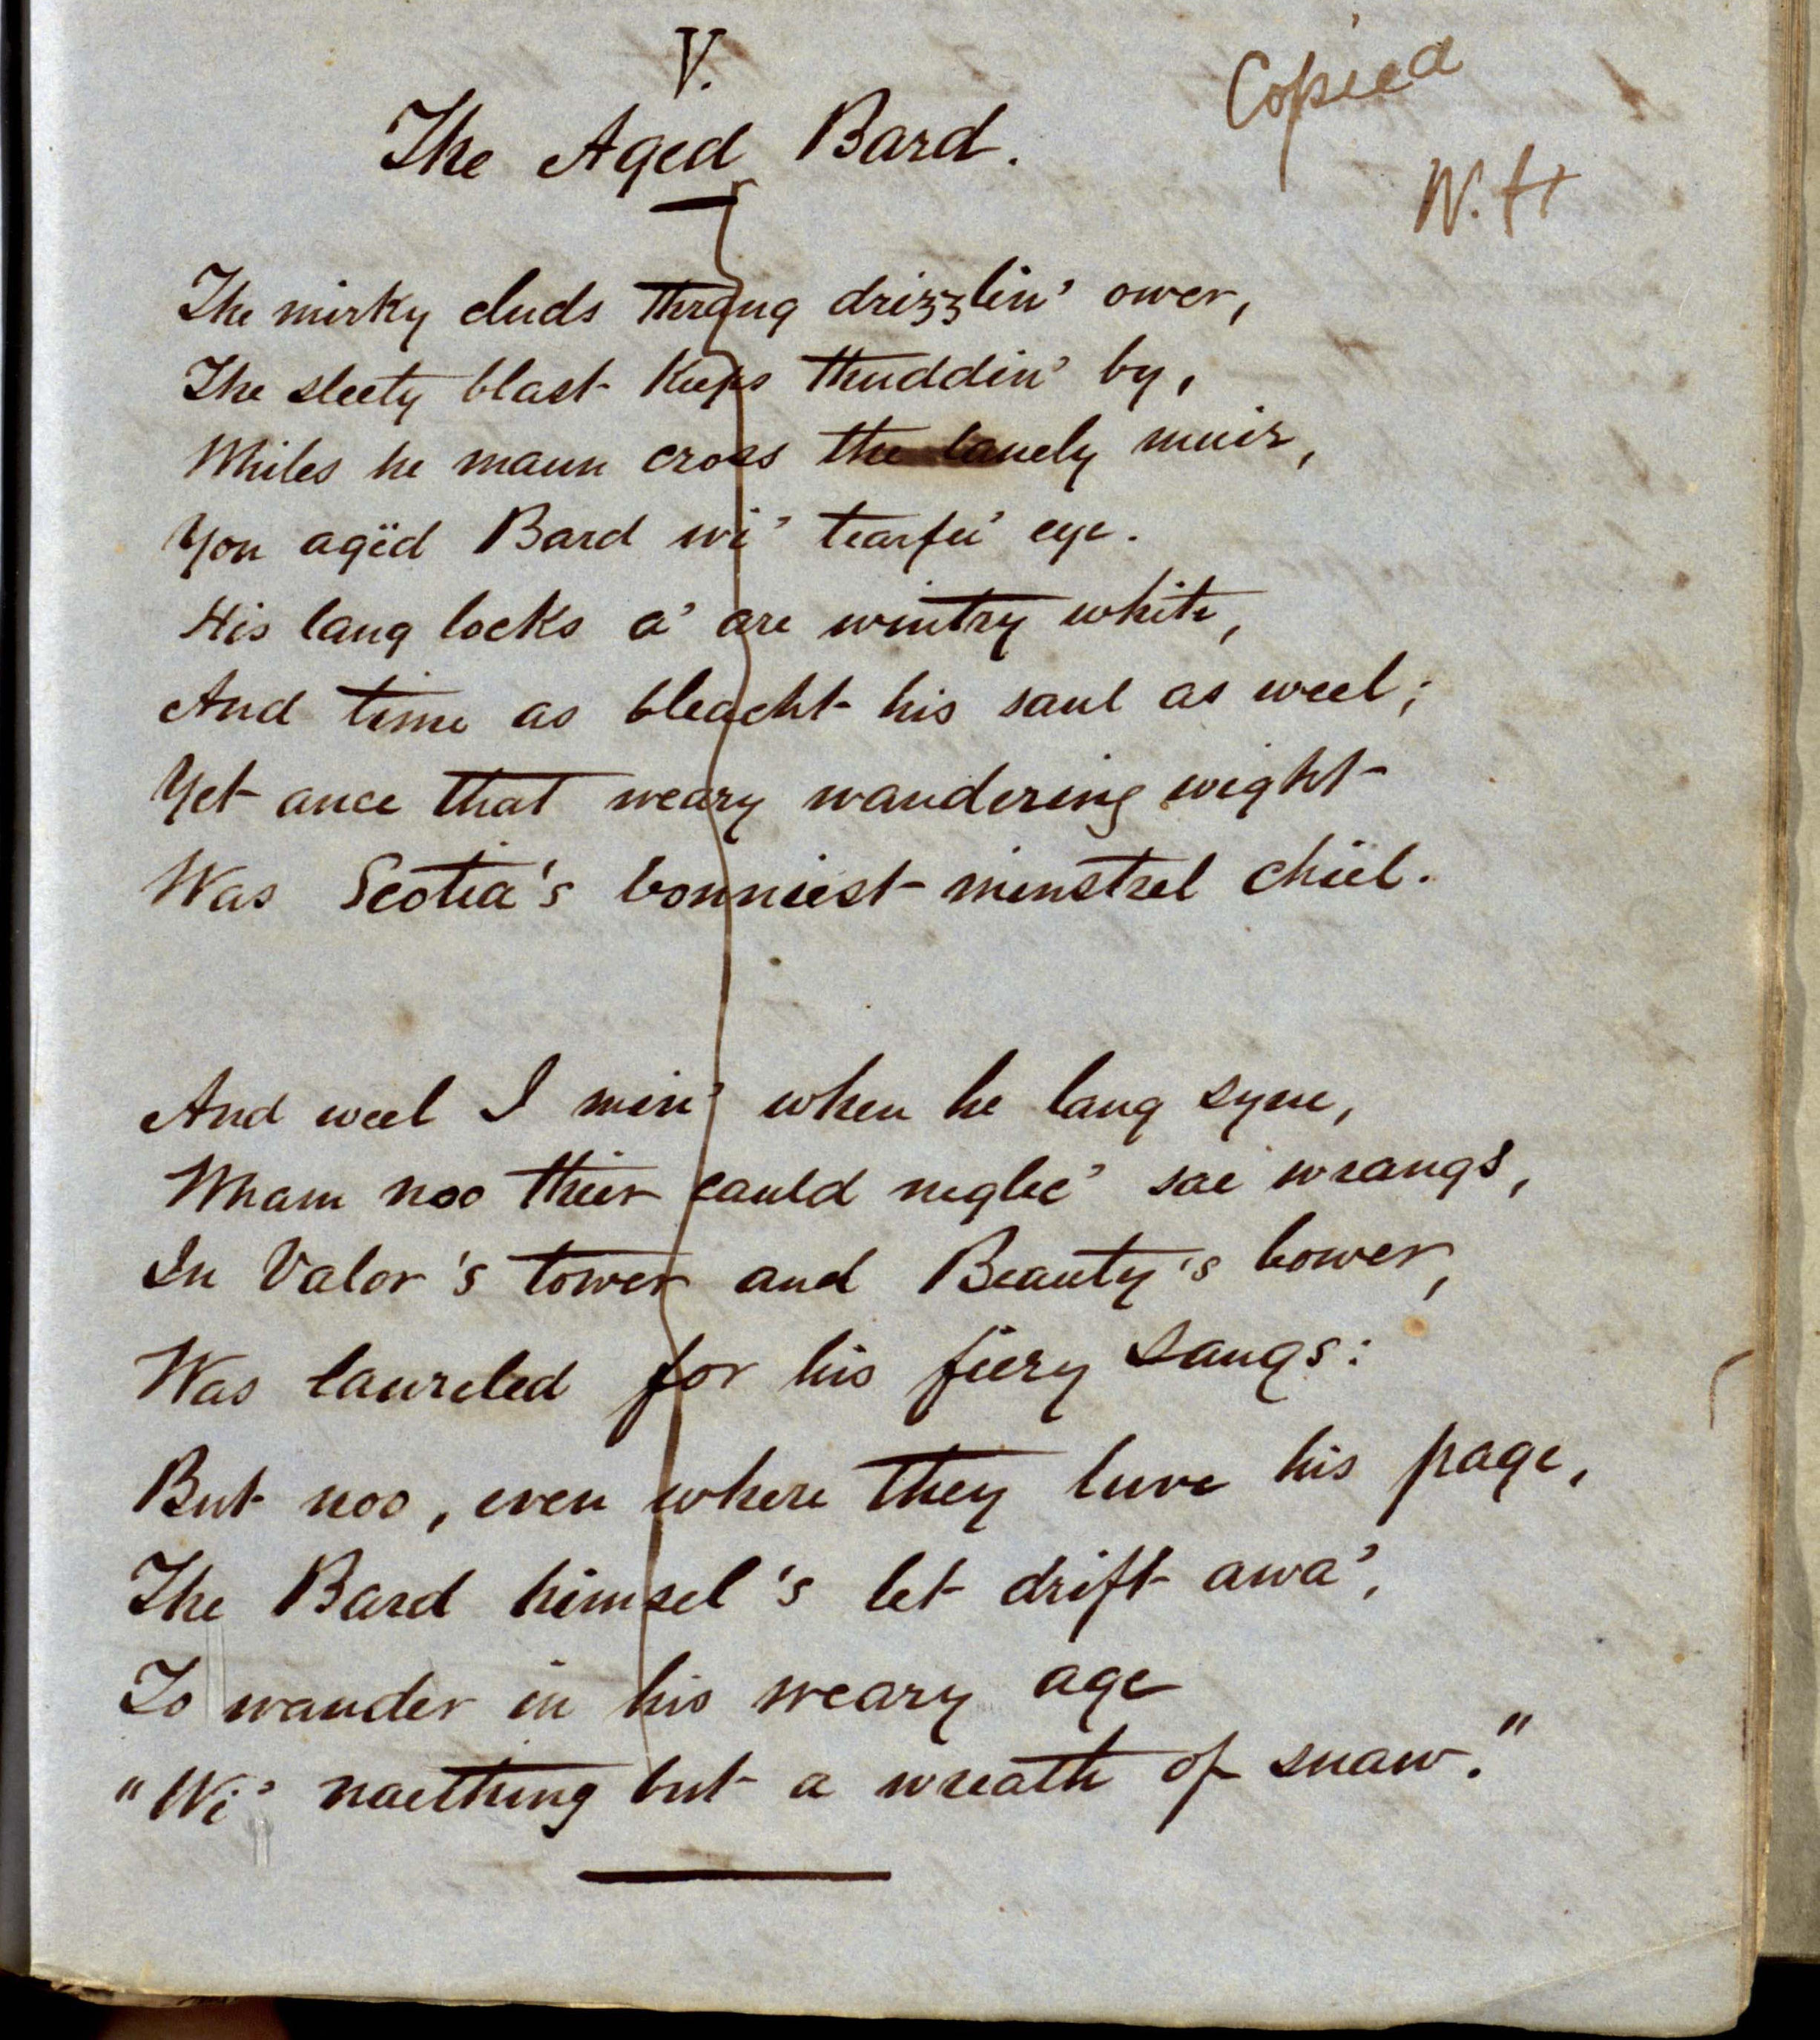 V.
Copied
The Aged Bard.
W. H
The mirky cluds thrang drizzlin' ower,
The sleety blast keeps thuddin' by,
Whiles he maun cross the lanely muir,
Yon agëd Bard wi' tearfu' eye.
His lang locks a' are wintry white,
And time as bleacht his saul as weel;
Yet ance that weary wandering wight
Was Scotia's bonniest minstrel chiel.
And weel I min' when he lang syne,
Wham noo their cauld neglec' sae wrangs,
In Valor's tower and Beauty's bower,
Was laureled for his fiery sangs:
But noo, even where they luve his page,
The Bard himsel's let drift awa',
To wander in his weary age
"Wi' naething but a wreath of snaw."